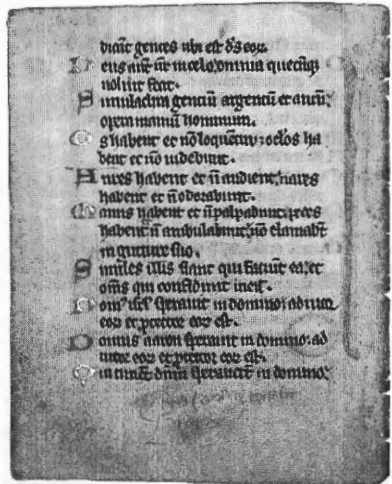 dicāt gentes ubi est d̄s eoꝝ.
Deus aūt nr̄ in celo: omnia quecūq;
uoluit fecit.
Simulacra gentiū argentū et aurū:
opera manuū hominum.
Os habent et nō loquentur: oclos ha
bent et nō uidebunt.
Aures habent et n̄ audient: nares
habent et n̄ odorabunt.
Manus habent et n̄ palpabunt: pedes
habent n̄ ambulabunt: nō clamabūt
in gutture suo.
Similes illis fiant qui faciunt ea: et
om̄s qui confidunt in eis.
Domꝰ isrl̄ sperauit in domino: adiutor
eoꝝ et ꝓtector eoꝝ est.
Domus aaron sperauit in domino: ad
iutor eoꝝ et ꝓtector eoꝝ est.
Qui timēt dn̄m sperauerūt in domino: